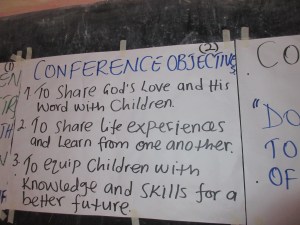 (1)
(2)
CONFERENCE OBJECTIVES
1. To Share God's Love and His
Word with Children.
2. To share life experiences
and Learn from one another.
3. To equip Children with
Knowledge and Skills for a
better future.
CO
"DO
TO
OF